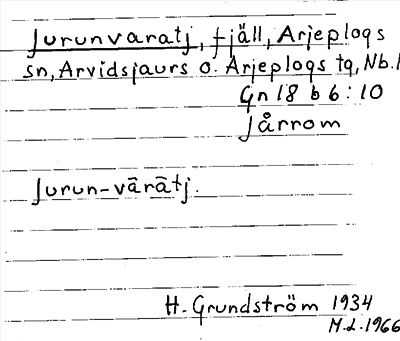 Jurunvaratj, fjäll, Arjeplogs
sn, Arvidsjaurs o. Arjeplogs tg, Nb.l
Gn 18 b 6:10
Jårrom
Jurun-vārātj.
H. Grundström 1934
M.L. 1966